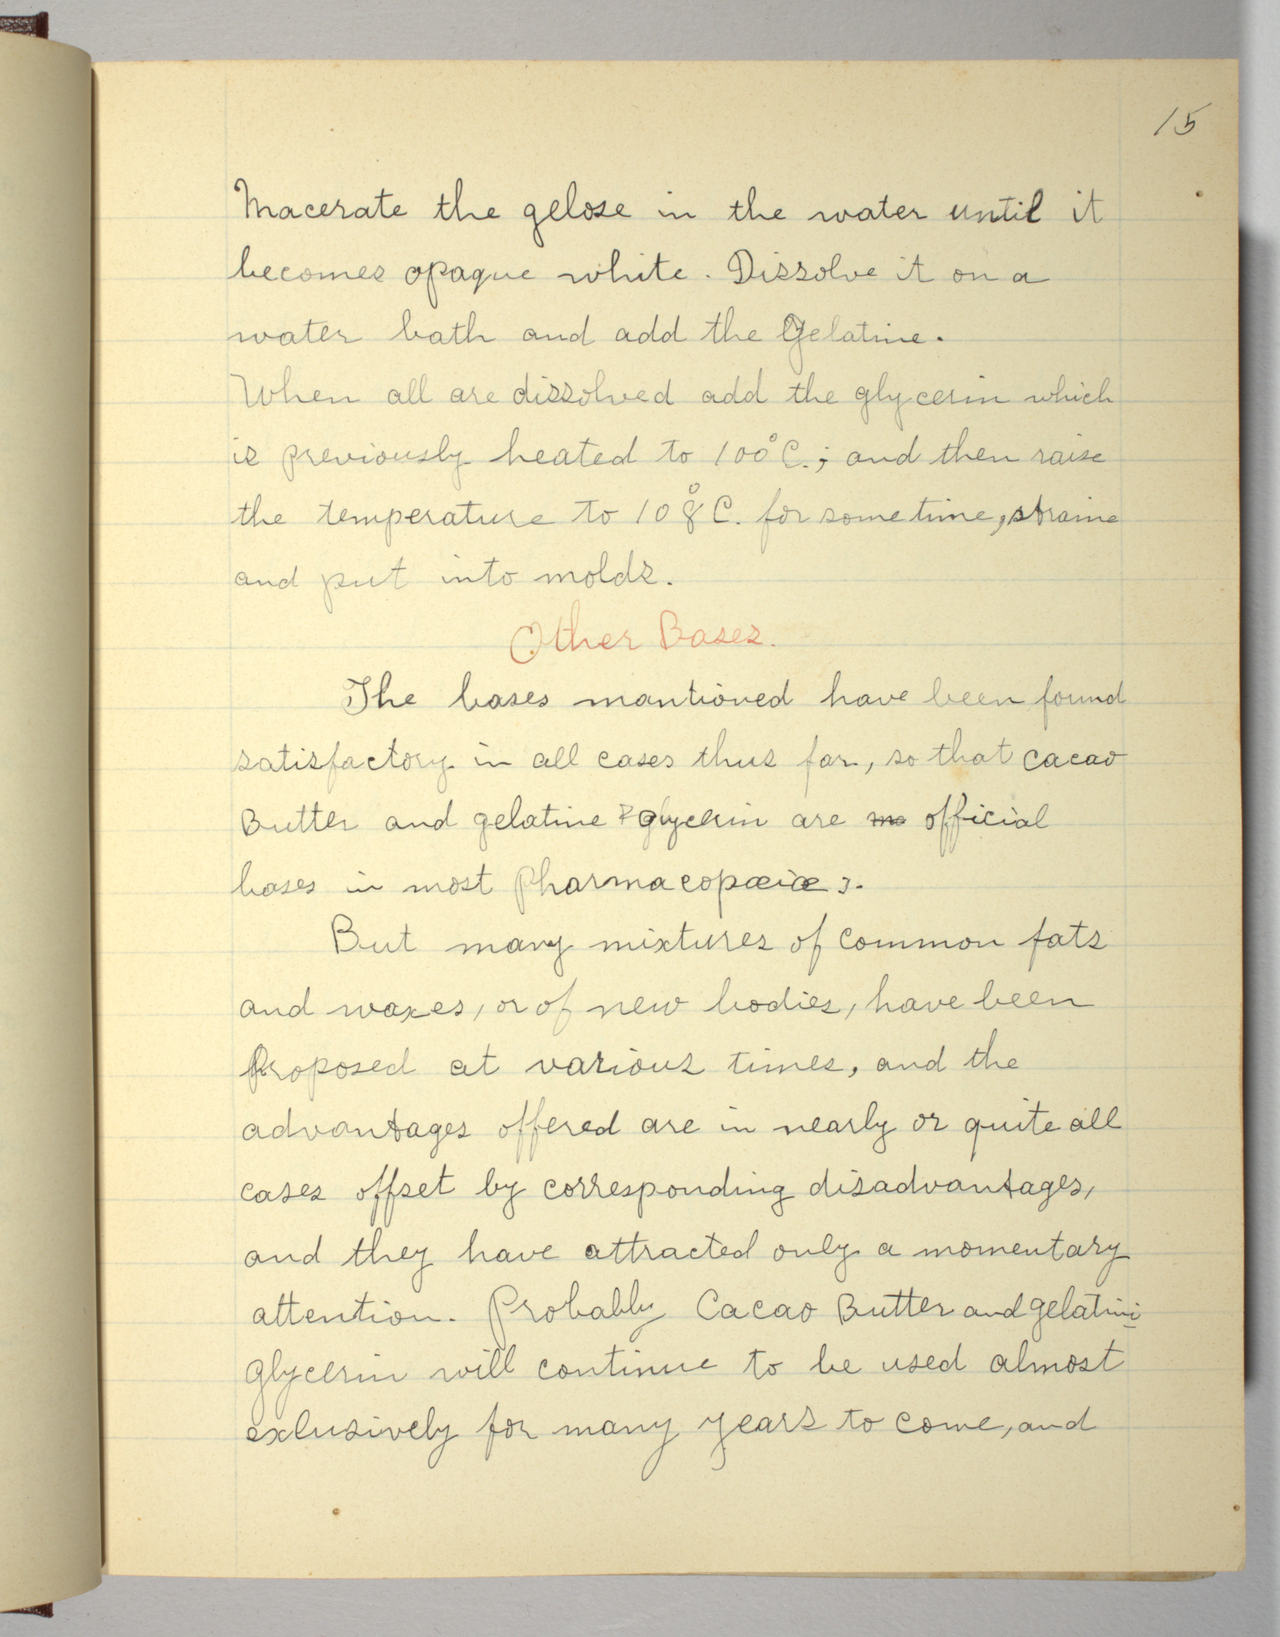 15
Macerate the gelose in the water until it
becomes opaque white. Dissolve it on a
water bath and add the Gelatine.
When all are dissolved add the glycerin which
is previously heated to 100°C.; and then raise
the temperature to 108°C. for some time, straine
and put into molds.
Other Bases.
The bases mantioned have been found
satisfactory in all cases thus far, so that cacao
Butter and gelatine & glycerin are official
bases in most Pharmacopœiæs.
But many mixtures of common fats
and waxes, or of new bodies, have been
Proposed at various times, and the
advantages offered are in nearly or quite all
cases offset by corresponding disadvantages,
and they have attracted only a momentary
attention. Probably Cacao Butter and gelatini
glycerin will continue to be used almost
exlusively for many years to come, and